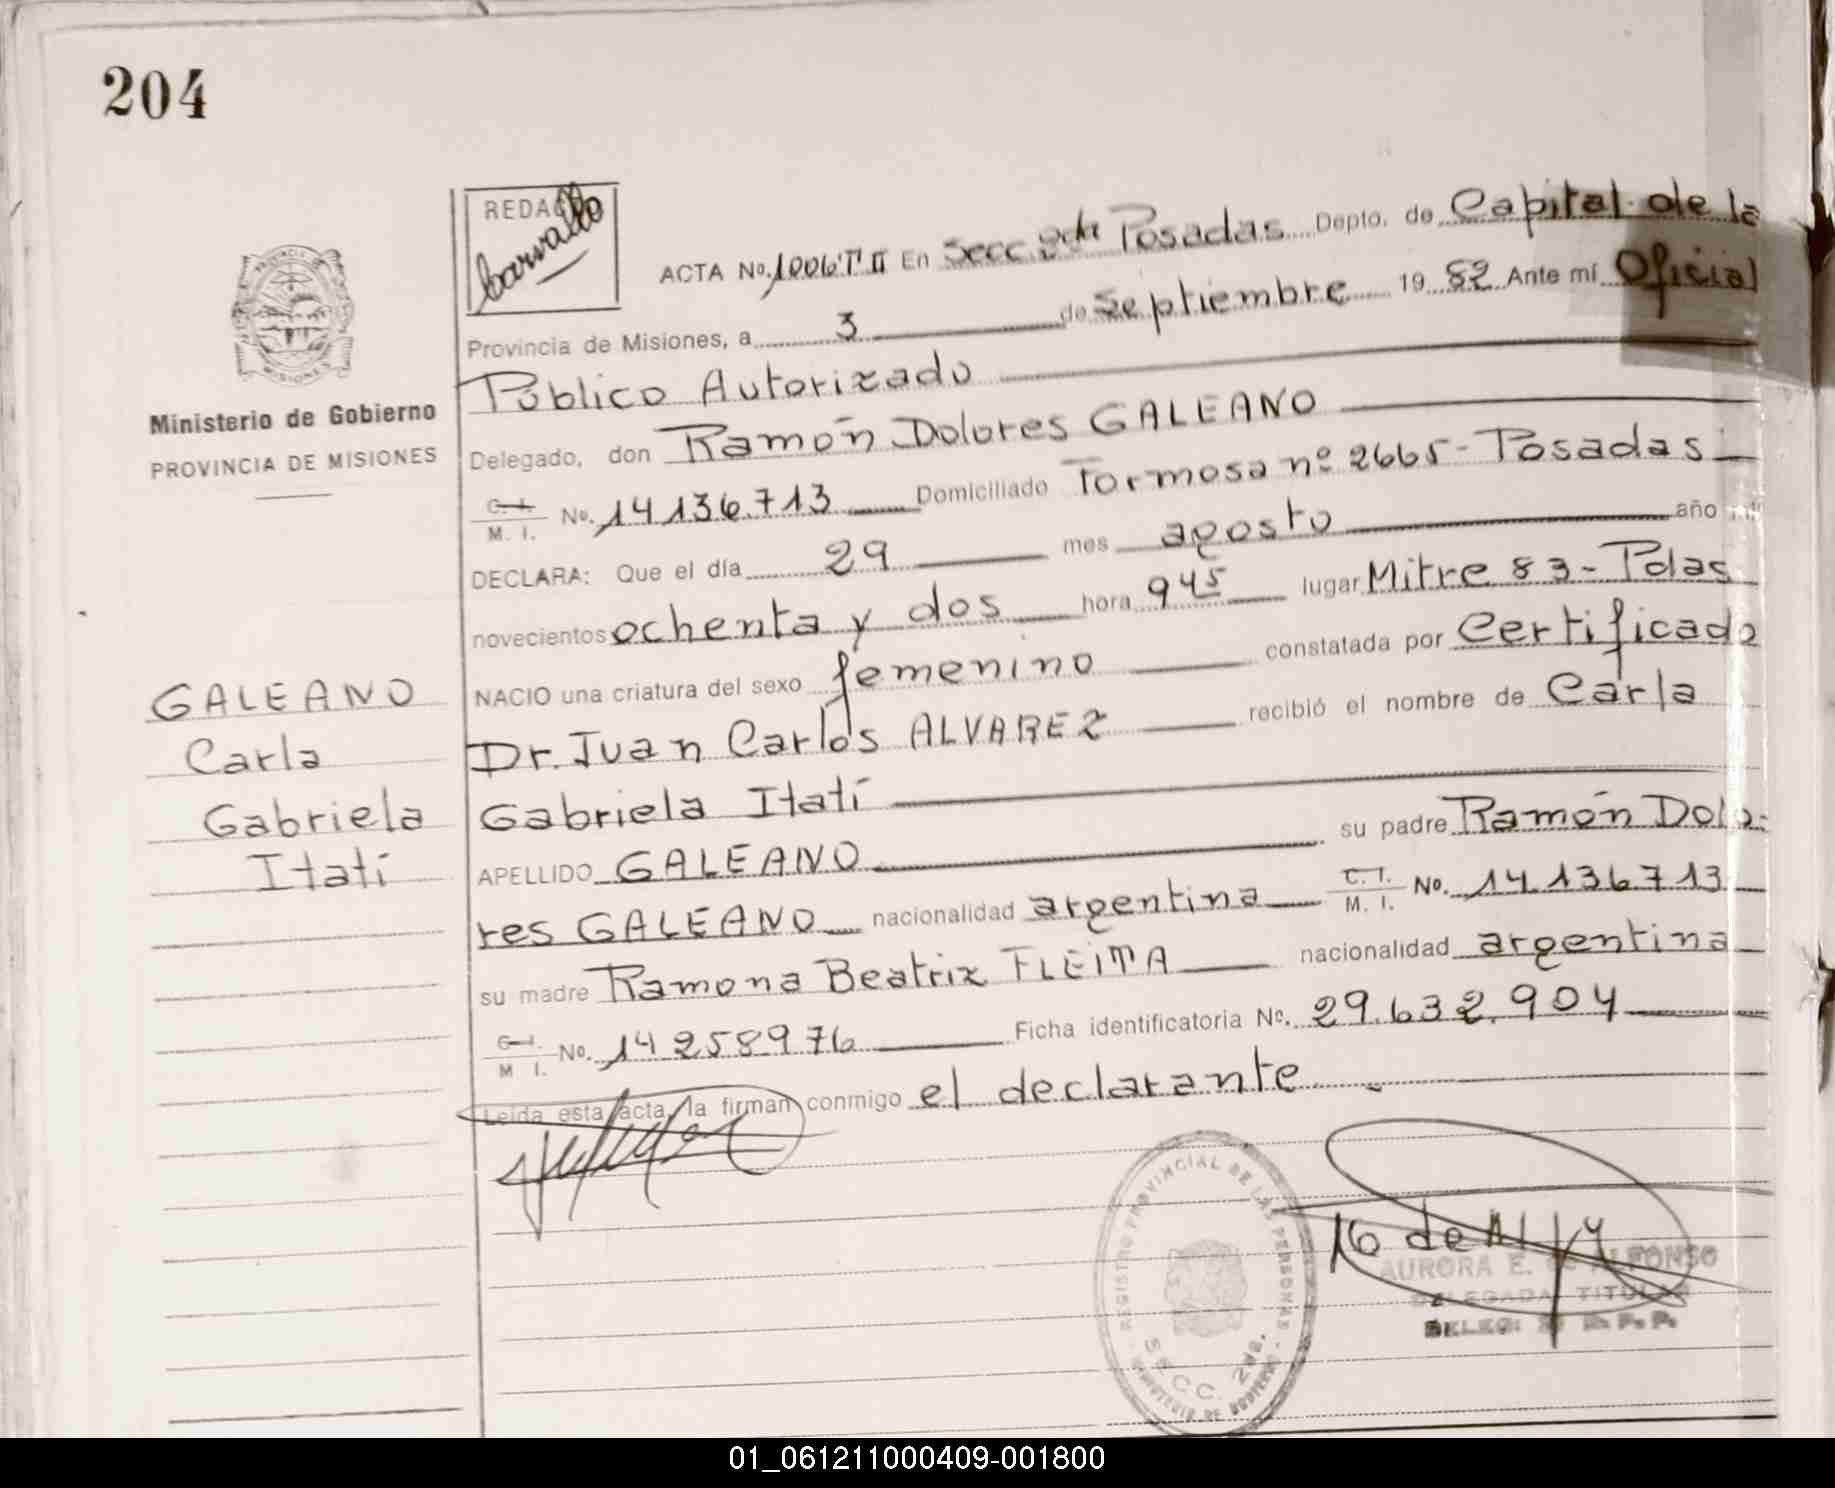 204
REDAC
Carvallo
ACTA No. 1006 T II En Secc. 2da Posadas Depto. de Capital de la
Provincia de Misiones, a 3 de Septiembre 19 82 Ante mí Oficial
Público Autorizado
Delegado, don Ramón Dolores GALEANO
C. I. M. I. No. 14136713 Domiciliado Formosa nº 2665 - Posadas
DECLARA: Que el día 29 mes agosto año mil
novecientos ochenta y dos hora 9 45 lugar Mitre 83 - Pdas
NACIO una criatura del sexo femenino constatada por Certificado
Dr. Juan Carlos ALVAREZ recibió el nombre de Carla
Gabriela Itatí
APELLIDO GALEANO su padre Ramón Dolo-
res GALEANO nacionalidad argentina C. I. M. I. No. 14.136713
su madre Ramona Beatriz FLEITA nacionalidad argentina
C. I. M. I. No. 14258976 Ficha identificatoria No. 29.632.904
Leída esta acta, la firman conmigo el declarante
PROVINCIA DE MISIONES
Ministerio de Gobierno
PROVINCIA DE MISIONES
GALEANO
Carla
Gabriela
Itatí
REGISTRO PROVINCIAL DE LAS PERSONAS
SECC. 2da.
MINISTERIO DE GOBIERNO
AURORA E. de ALFONSO
DELEGADA TITULAR
01_061211000409-001800